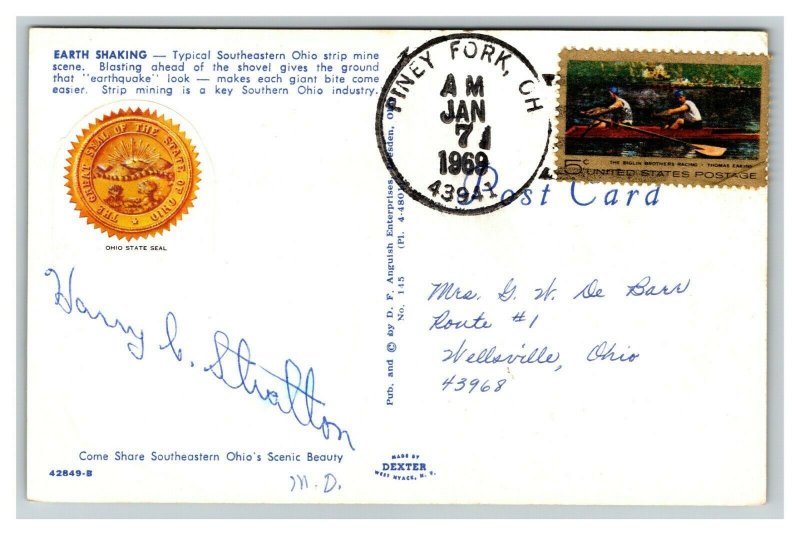 EARTH SHAKING — Typical Southeastern Ohio strip mine
scene. Blasting ahead of the shovel gives the ground
that "earthquake" look — makes each giant bite come
easier. Strip mining is a key Southern Ohio industry.
THE GREAT SEAL OF THE STATE OF OHIO
OHIO STATE SEAL
Harry C. Stratton
Come Share Southeastern Ohio's Scenic Beauty
42849-B
M.D.
Pub. and © by D. F. Anguish Enterprises, Dresden,
No. 145 (Pl. 4-480)
MADE BY
DEXTER
WEST NYACK, N. Y.
PINEY FORK, OH
AM
JAN
7
1969
43941
THE BIGLIN BROTHERS RACING · THOMAS EAKINS
5c UNITED STATES POSTAGE
Post Card
Mrs. G. W. De Barr
Route #1
Wellsville, Ohio
43968